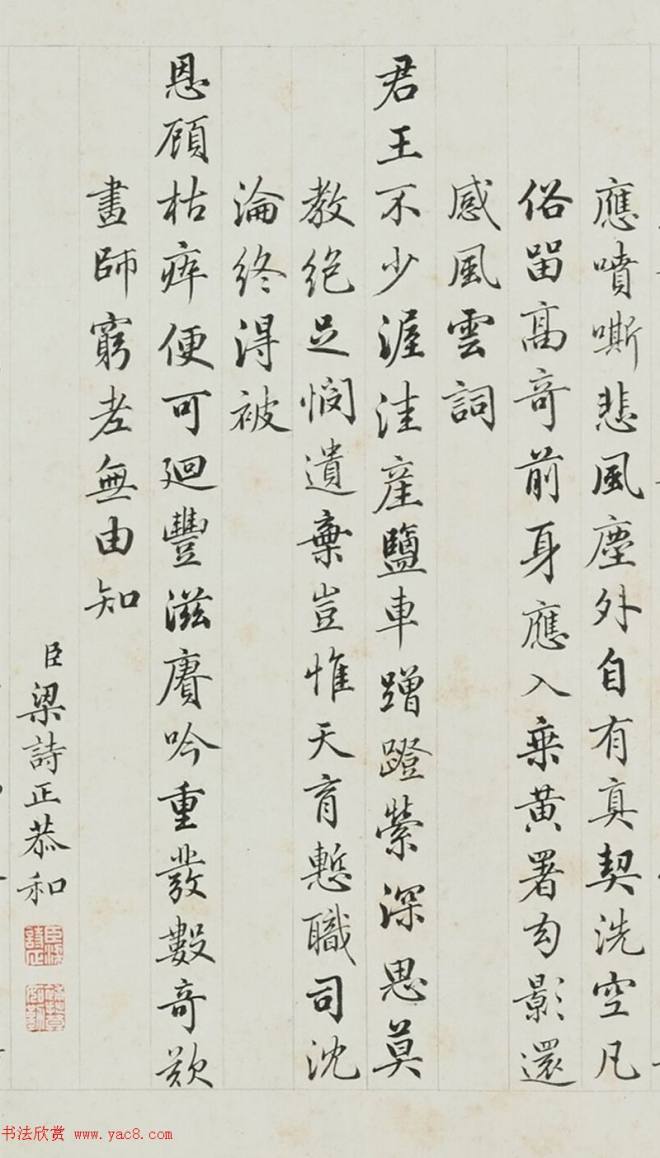 應噴嘶悲風塵外自有真契洗空凡
俗留高奇前身應入乘黃署勾影還
感風雲詞
君王不少渥洼產鹽車蹭蹬縈深思莫
教絕足憫遺棄豈惟天育慙職司沈
淪終得被
恩顧枯瘁便可迴豐滋賡吟重發數奇歎
畫師窮老無由知
臣梁詩正恭和
书法欣赏 www.yac8.com